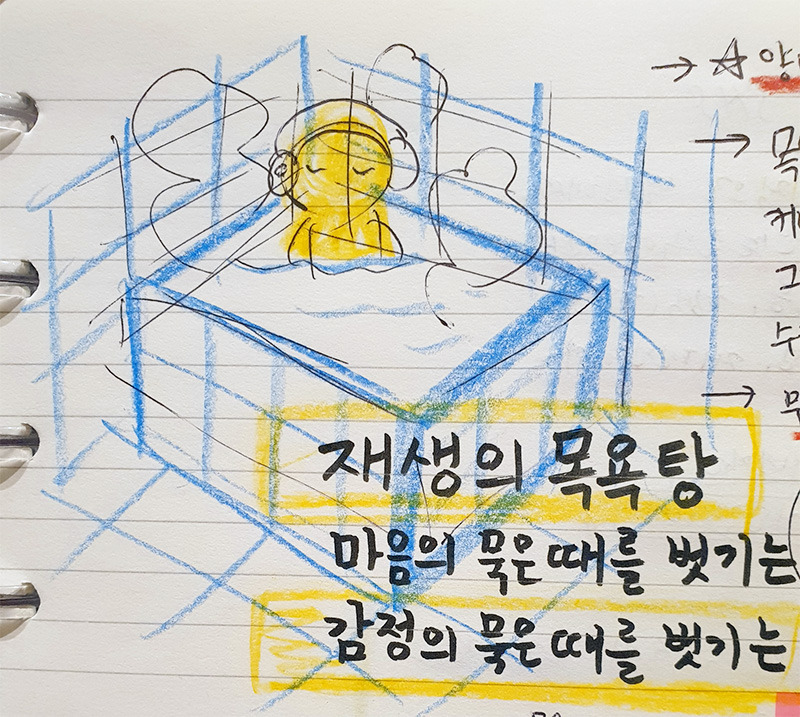 → ☆
→ 목
그
수
→
재생의 목욕탕
마음의 묵은때를 벗기는
감정의 묵은때를 벗기는